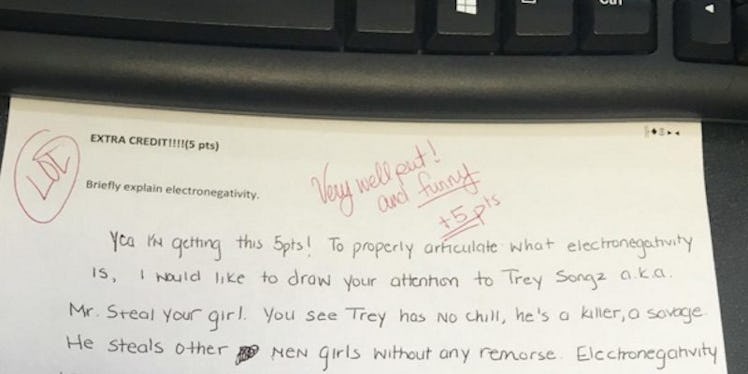 Ctrl
EXTRA CREDIT!!!!(5 pts)
LOL
Briefly explain electronegativity.
Very well put!
and funny
+5 pts
Yea I'm getting this 5pts! To properly articulate what electronegativity
is, I would like to draw your attention to Trey Songz a.k.a.
Mr. Steal your girl. You see Trey has no chill, he's a killer, a savage.
He steals other men girls without any remorse. Electronegativity